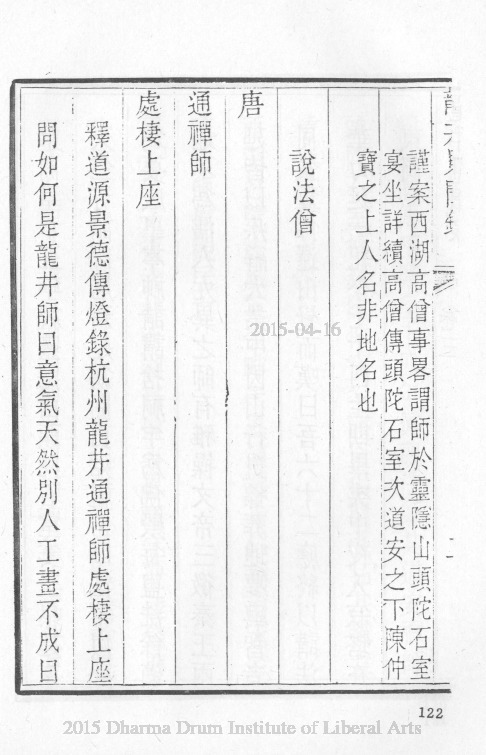 謹案西湖高僧事畧謂師於靈隱山頭陀石室
宴坐詳續高僧傳頭陀石室次道安之下陳仲
寶之上人名非地名也
說法僧
唐
通禪師
處棲上座
釋道源景德傳燈錄杭州龍井通禪師處棲上座
問如何是龍井師曰意氣天然別人工畫不成曰
122
2015-04-16
2015 Dharma Drum Institute of Liberal Arts